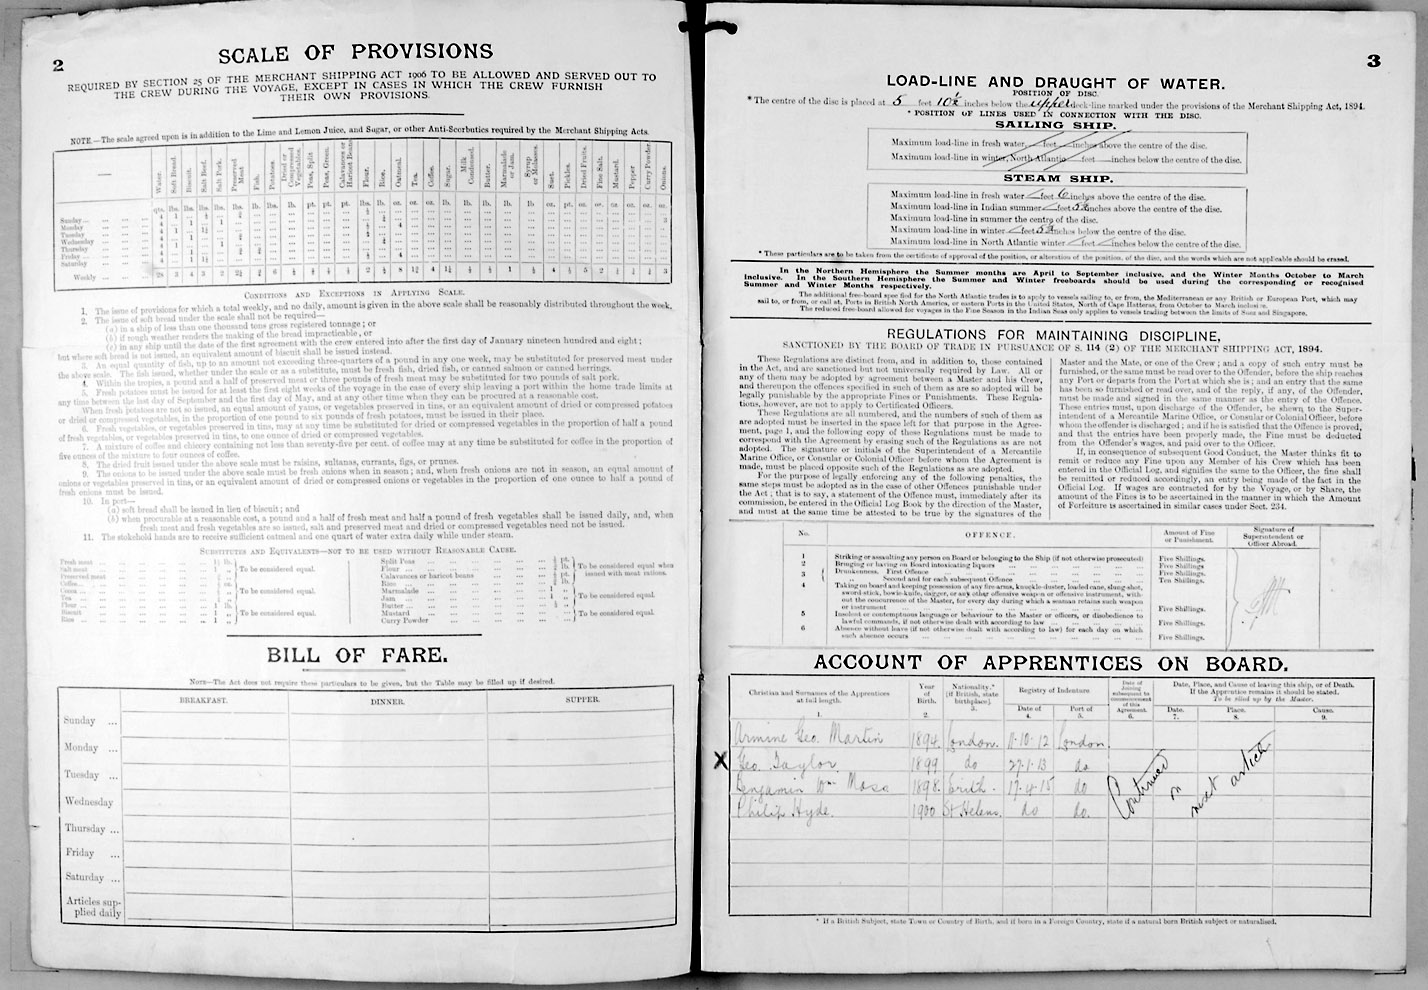 2
SCALE OF PROVISIONS
REQUIRED BY SECTION 25 OF THE MERCHANT SHIPPING ACT 1906 TO BE ALLOWED AND SERVED OUT TO
THE CREW DURING THE VOYAGE, EXCEPT IN CASES IN WHICH THE CREW FURNISH
THEIR OWN PROVISIONS.
NOTE.—The scale agreed upon is in addition to the Lime and Lemon Juice, and Sugar, or other Anti-Scorbutics required by the Merchant Shipping Acts.
Water. Soft Bread. Biscuit. Salt Beef. Salt Pork. Preserved Meat. Fish. Potatoes. Dried or Compressed Vegetables. Peas, Split Peas, Green. Calavances or Haricot Beans Flour. Rice. Oatmeal. Tea. Coffee. Sugar. Milk Condensed. Butter. Marmalade or Jam. Syrup or Molasses. Suet. Pickles. Dried Fruits. Fine Salt. Mustard. Pepper Curry Powder. Onions.
qts. lbs. lbs. lbs. lbs. lbs. lbs. lbs. lb. pt. pt. pt. lbs. lb. oz. oz. oz. lbs. lb. lb. lb. lb. oz. pt. oz. oz. oz. oz. oz. oz.
Sunday
Monday
Tuesday
Wednesday
Thursday
Friday
Saturday
Weekly
CONDITIONS AND EXCEPTIONS IN APPLYING SCALE.
1. The issue of provisions for which a total weekly, and no daily, amount is given in the above scale shall be reasonably distributed throughout the week.
2. The issue of soft bread under the scale shall not be required—
(a) in a ship of less than one thousand tons gross registered tonnage; or
(b) if rough weather renders the making of the bread impracticable, or
(c) in any ship until the date of the first agreement with the crew entered into after the first day of January nineteen hundred and eight;
but where soft bread is not issued, an equivalent amount of biscuit shall be issued instead.
3. An equal quantity of fish, up to an amount not exceeding three-quarters of a pound in any one week, may be substituted for preserved meat under
the above scale. The fish issued, whether under the scale or as a substitute, must be fresh fish, dried fish, or canned salmon or canned herrings.
4. Within the tropics, a pound and a half of preserved meat or three pounds of fresh meat may be substituted for two pounds of salt pork.
5. Fresh potatoes must be issued for at least the first eight weeks of the voyage in the case of every ship leaving a port within the home trade limits at
any time between the last day of September and the first day of May, and at any other time when they can be procured at a reasonable cost.
When fresh potatoes are not so issued, an equal amount of yams, or vegetables preserved in tins, or an equivalent amount of dried or compressed potatoes
or dried or compressed vegetables, in the proportion of one pound to six pounds of fresh potatoes, must be issued in their place.
6. Fresh vegetables, or vegetables preserved in tins, may at any time be substituted for dried or compressed vegetables in the proportion of half a pound
of fresh vegetables, or vegetables preserved in tins, to one ounce of dried or compressed vegetables.
7. A mixture of coffee and chicory containing not less than seventy-five per cent. of coffee may at any time be substituted for coffee in the proportion of
five ounces of the mixture to four ounces of coffee.
8. The dried fruit issued under the above scale must be raisins, sultanas, currants, figs, or prunes.
9. The onions to be issued under the above scale must be fresh onions when in season; and, when fresh onions are not in season, an equal amount of
onions or vegetables preserved in tins, or an equivalent amount of dried or compressed onions or vegetables in the proportion of one ounce to half a pound of
fresh onions must be issued.
10. In port—
(a) soft bread shall be issued in lieu of biscuit; and
(b) when procurable at a reasonable cost, a pound and a half of fresh meat and half a pound of fresh vegetables shall be issued daily, and, when
fresh meat and fresh vegetables are so issued, salt and preserved meat and dried or compressed vegetables need not be issued.
11. The stokehold hands are to receive sufficient oatmeal and one quart of water extra daily while under steam.
SUBSTITUTES AND EQUIVALENTS—NOT TO BE USED WITHOUT REASONABLE CAUSE.
Fresh meat
Salt meat
Preserved meat
To be considered equal.
Coffee
Cocoa
Tea
To be considered equal.
Flour
Biscuit
Rice
To be considered equal.
Split Peas
Flour
Calavances or haricot beans
Rice
To be considered equal when issued with meat rations.
Marmalade
Jam
Butter
To be considered equal.
Mustard
Curry Powder
To be considered equal.
BILL OF FARE.
NOTE—The Act does not require these particulars to be given, but the Table may be filled up if desired.
BREAKFAST. DINNER. SUPPER.
Sunday ...
Monday ...
Tuesday ...
Wednesday
Thursday ...
Friday ...
Saturday ...
Articles sup-
plied daily
3
LOAD-LINE AND DRAUGHT OF WATER.
POSITION OF DISC.
* The centre of the disc is placed at 5 feet 10½ inches below the upper deck-line marked under the provisions of the Merchant Shipping Act, 1894.
* POSITION OF LINES USED IN CONNECTION WITH THE DISC.
SAILING SHIP.
Maximum load-line in fresh water feet inches above the centre of the disc.
Maximum load-line in winter, North Atlantic feet inches below the centre of the disc.
STEAM SHIP.
Maximum load-line in fresh water feet 6 inches above the centre of the disc.
Maximum load-line in Indian summer feet 5½ inches above the centre of the disc.
Maximum load-line in summer the centre of the disc.
Maximum load-line in winter feet 5½ inches below the centre of the disc.
Maximum load-line in North Atlantic winter feet inches below the centre of the disc.
* These particulars are to be taken from the certificate of approval of the position, or alteration of the position, of the disc, and the words which are not applicable should be erased.
In the Northern Hemisphere the Summer months are April to September inclusive, and the Winter Months October to March
inclusive. In the Southern Hemisphere the Summer and Winter freeboards should be used during the corresponding or recognised
Summer and Winter Months respectively.
The additional free-board specified for the North Atlantic trades is to apply to vessels sailing to, or from, the Mediterranean or any British or European Port, which may
sail to, or from, or call at, Ports in British North America, or eastern Ports in the United States, North of Cape Hatteras, from October to March inclusive.
The reduced free-board allowed for voyages in the Fine Season in the Indian Seas only applies to vessels trading between the limits of Suez and Singapore.
REGULATIONS FOR MAINTAINING DISCIPLINE,
SANCTIONED BY THE BOARD OF TRADE IN PURSUANCE OF S. 114 (2) OF THE MERCHANT SHIPPING ACT, 1894.
These Regulations are distinct from, and in addition to, those contained
in the Act, and are sanctioned but not universally required by Law. All or
any of them may be adopted by agreement between a Master and his Crew,
and thereupon the offences specified in such of them as are so adopted will be
legally punishable by the appropriate Fines or Punishments. These Regula-
tions, however, are not to apply to Certificated Officers.
These Regulations are all numbered, and the numbers of such of them as
are adopted must be inserted in the space left for that purpose in the Agree-
ment, page 1, and the following copy of these Regulations must be made to
correspond with the Agreement by erasing such of the Regulations as are not
adopted. The signature or initials of the Superintendent of a Mercantile
Marine Office, or Consular or Colonial Officer before whom the Agreement is
made, must be placed opposite such of the Regulations as are adopted.
For the purpose of legally enforcing any of the following penalties, the
same steps must be adopted as in the case of other Offences punishable under
the Act; that is to say, a statement of the Offence must, immediately after its
commission, be entered in the Official Log Book by the direction of the Master,
and must at the same time be attested to be true by the signatures of the
Master and the Mate, or one of the Crew; and a copy of such entry must be
furnished, or the same must be read over to the Offender, before the ship reaches
any Port or departs from the Port at which she is; and an entry that the same
has been so furnished or read over, and of the reply, if any, of the Offender,
must be made and signed in the same manner as the entry of the Offence
These entries must, upon discharge of the Offender, be shown to the Super-
intendent of a Mercantile Marine Office, or Consular or Colonial Officer, before
whom the offender is discharged; and if he is satisfied that the Offence is proved,
and that the entries have been properly made, the Fine must be deducted
from the Offender's wages, and paid over to the Officer.
If, in consequence of subsequent Good Conduct, the Master thinks fit to
remit or reduce any Fine upon any Member of his Crew which has been
entered in the Official Log, and signifies the same to the Officer, the fine shall
be remitted or reduced accordingly, an entry being made of the fact in the
Official Log. If wages are contracted for by the Voyage, or by Share, the
amount of the Fines is to be ascertained in the manner in which the Amount
of Forfeiture is ascertained in similar cases under Sect. 234.
No. OFFENCE. Amount of Fine or Punishment. Signature of Superintendent or Officer Abroad.
1 Striking or assaulting any person on Board or belonging to the Ship (if not otherwise prosecuted) Five Shillings.
2 Bringing or having on Board intoxicating liquors Five Shillings
3 Drunkenness. First Offence Five Shillings.
Second and for each subsequent Offence Ten Shillings.
4 Taking on board and keeping possession of any fire-arms, knuckle-duster, loaded cane, slung-shot,
sword-stick, bowie-knife, dagger, or any other offensive weapon or offensive instrument, with-
out the concurrence of the Master, for every day during which a seaman retains such weapon
or instrument Five Shillings.
5 Insolent or contemptuous language or behaviour to the Master or officers, or disobedience to
lawful commands, if not otherwise dealt with according to law Five Shillings.
6 Absence without leave (if not otherwise dealt with according to law) for each day on which
such absence occurs Five Shillings.
ACCOUNT OF APPRENTICES ON BOARD.
Christian and Surnames of the Apprentices at full length. 1.
Year of Birth. 2.
Nationality.* [if British, state birthplace]. 3.
Registry of Indenture
Date of 4. Port of 5.
Date of Joining subsequent to commencement of this Agreement. 6.
Date, Place, and Cause of leaving this ship, or of Death.
If the Apprentice remains it should be stated.
To be filled up by the Master.
Date. 7. Place. 8. Cause. 9.
Armine Geo. Martin 1894. London. 11.10.12 London
X Geo. Taylor 1899 do 27.1.13 do
Benjamin Wm Moss 1898. Erith. 17.4.15 do
Philip Hyde. 1900 St Helens. do do.
Continued
on
next article
* If a British Subject, state Town or Country of Birth, and if born in a Foreign Country, state if a natural born British subject or naturalised.